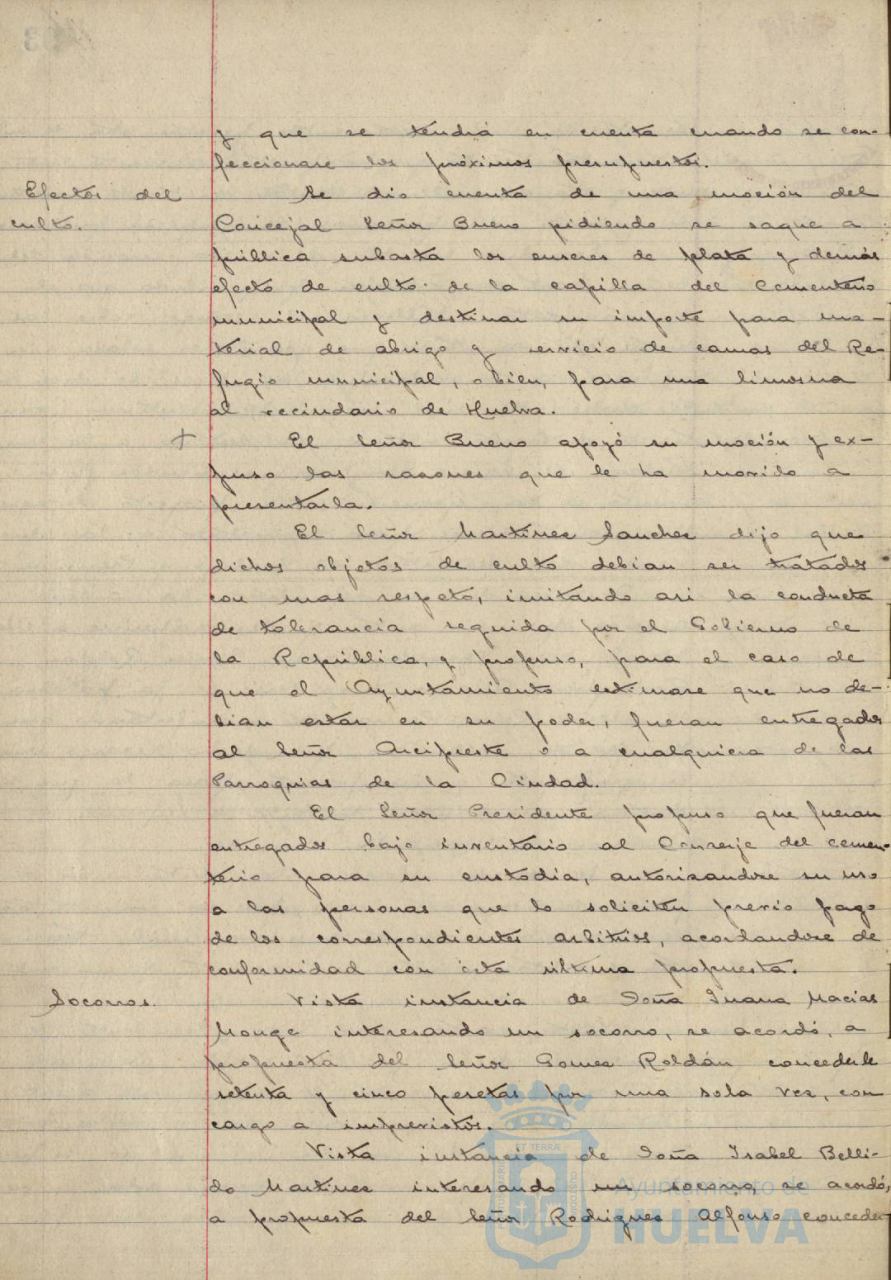 y que se tendrá en cuenta cuando se con-
feccionare los próximos presupuestos.
Efectos del
culto.
Se dio cuenta de una moción del
Concejal Señor Bueno pidiendo se saque a
pública subasta los enseres de plata y demás
efecto de culto de la capilla del Cementerio
municipal y destinar su importe para ma-
terial de abrigo y servicio de camas del Re-
fugio municipal, o bien, para una limosna
al vecindario de Huelva.
+
El Señor Bueno apoyó su moción y ex-
puso las rasones que le ha movido a
presentarla.
El Señor Martínez Sanchez dijo que
dichos objetos de culto debian ser tratados
con mas respeto, imitando asi la conducta
de tolerancia seguida por el Gobierno de
la República, y propuso, para el caso de
que el Ayuntamiento estimase que no de-
bian estar en su poder, fueran entregados
al Señor Arcipreste o a cualquiera de las
Parroquias de la Ciudad.
El Señor Presidente propuso que fueran
entregados bajo inventario al Conserje del cemen-
terio para su custodia, autorizandose su uso
a las personas que lo soliciten previo pago
de los correspondientes arbitrios, acordandose de
conformidad con ésta última propuesta.
Socorros.
Vista instancia de Doña Juana Macías
Monge interesando un socorro, se acordó, a
propuesta del Señor Gomez Roldán concederle
setenta y cinco pesetas por una sola vez, con
cargo a imprevistos.
Vista instancia de Doña Isabel Belli-
do Martinez interesando un socorro, se acordó,
a propuesta del Señor Rodriguez Alfonso conceder
Ayuntamiento de
HUELVA